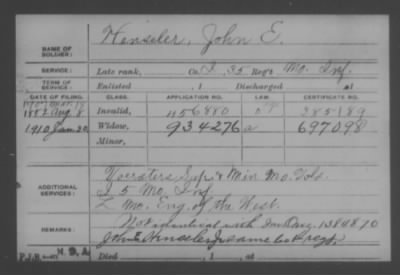 NAME OF SOLDIER: Hensler, John E.
SERVICE: Late rank, Co. I, 35 Reg't Mo. Inf.
TERM OF SERVICE: Enlisted , 1 Discharged , 1
DATE OF FILING. CLASS. APPLICATIONS NO. LAW. CERTIFICATE NO.
1882 Aug. 8 Invalid, 456880 285189
1910 Jan 20 Widow, 934276 a 697098
Minor,
ADDITIONAL SERVICES:
Voerster's Sap. & Min Mo. Vols.
I 5 Mo. Inf.
L Mo. Eng. of the West.
REMARKS: Not identical with Inv Orig. 1384870
John E Hensler same
Died , 1 , at